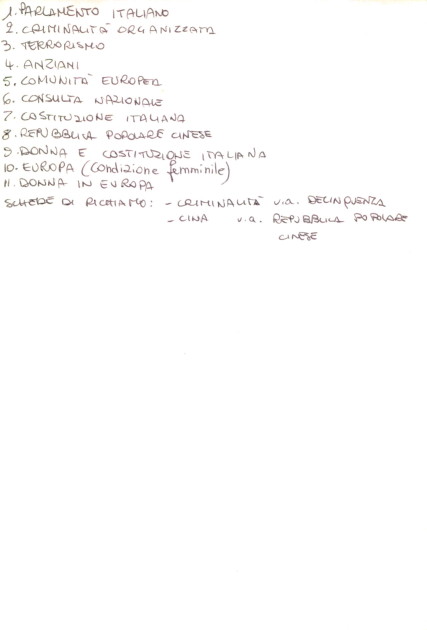 1. PARLAMENTO ITALIANO
2. CRIMINALITÀ ORGANIZZATA
3. TERRORISMO
4. ANZIANI
5. COMUNITÀ EUROPEA
6. CONSULTA NAZIONALE
7. COSTITUZIONE ITALIANA
8. REPUBBLICA POPOLARE CINESE
9. DONNA E COSTITUZIONE ITALIANA
10. EUROPA (Condizione femminile)
11. DONNA IN EUROPA
SCHEDE DI RICHIAMO: - CRIMINALITÀ v.a. DELINQUENZA
- CINA v.a. REPUBBLICA POPOLARE
CINESE